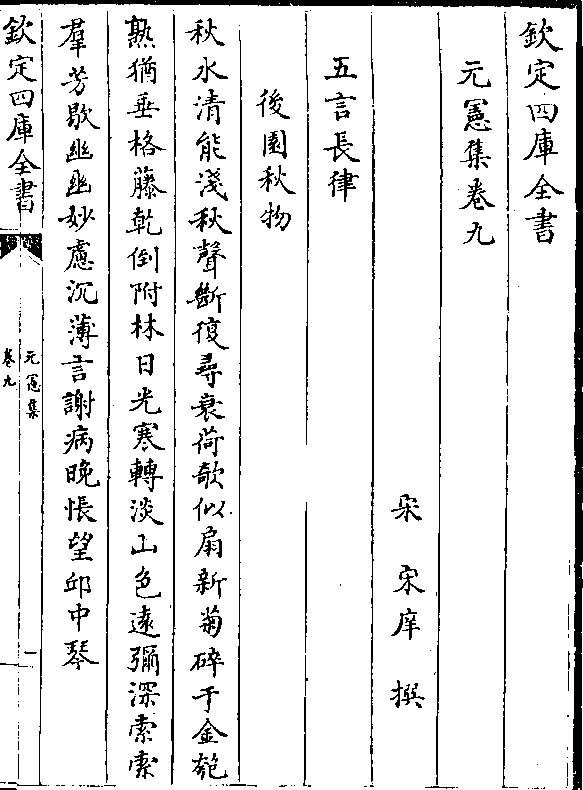 欽定四庫全書
元憲集卷九
宋 宋庠 撰
五言長律
後園秋物
秋水清能淺秋聲斷復尋衰荷欹似扇新菊碎于金匏
熟猶垂格藤乾倒附林日光寒轉淡山色遠彌深索索
羣芳歇幽幽妙慮沉薄言謝病晚悵望邱中琴
欽定四庫全書
元憲集
卷九
一